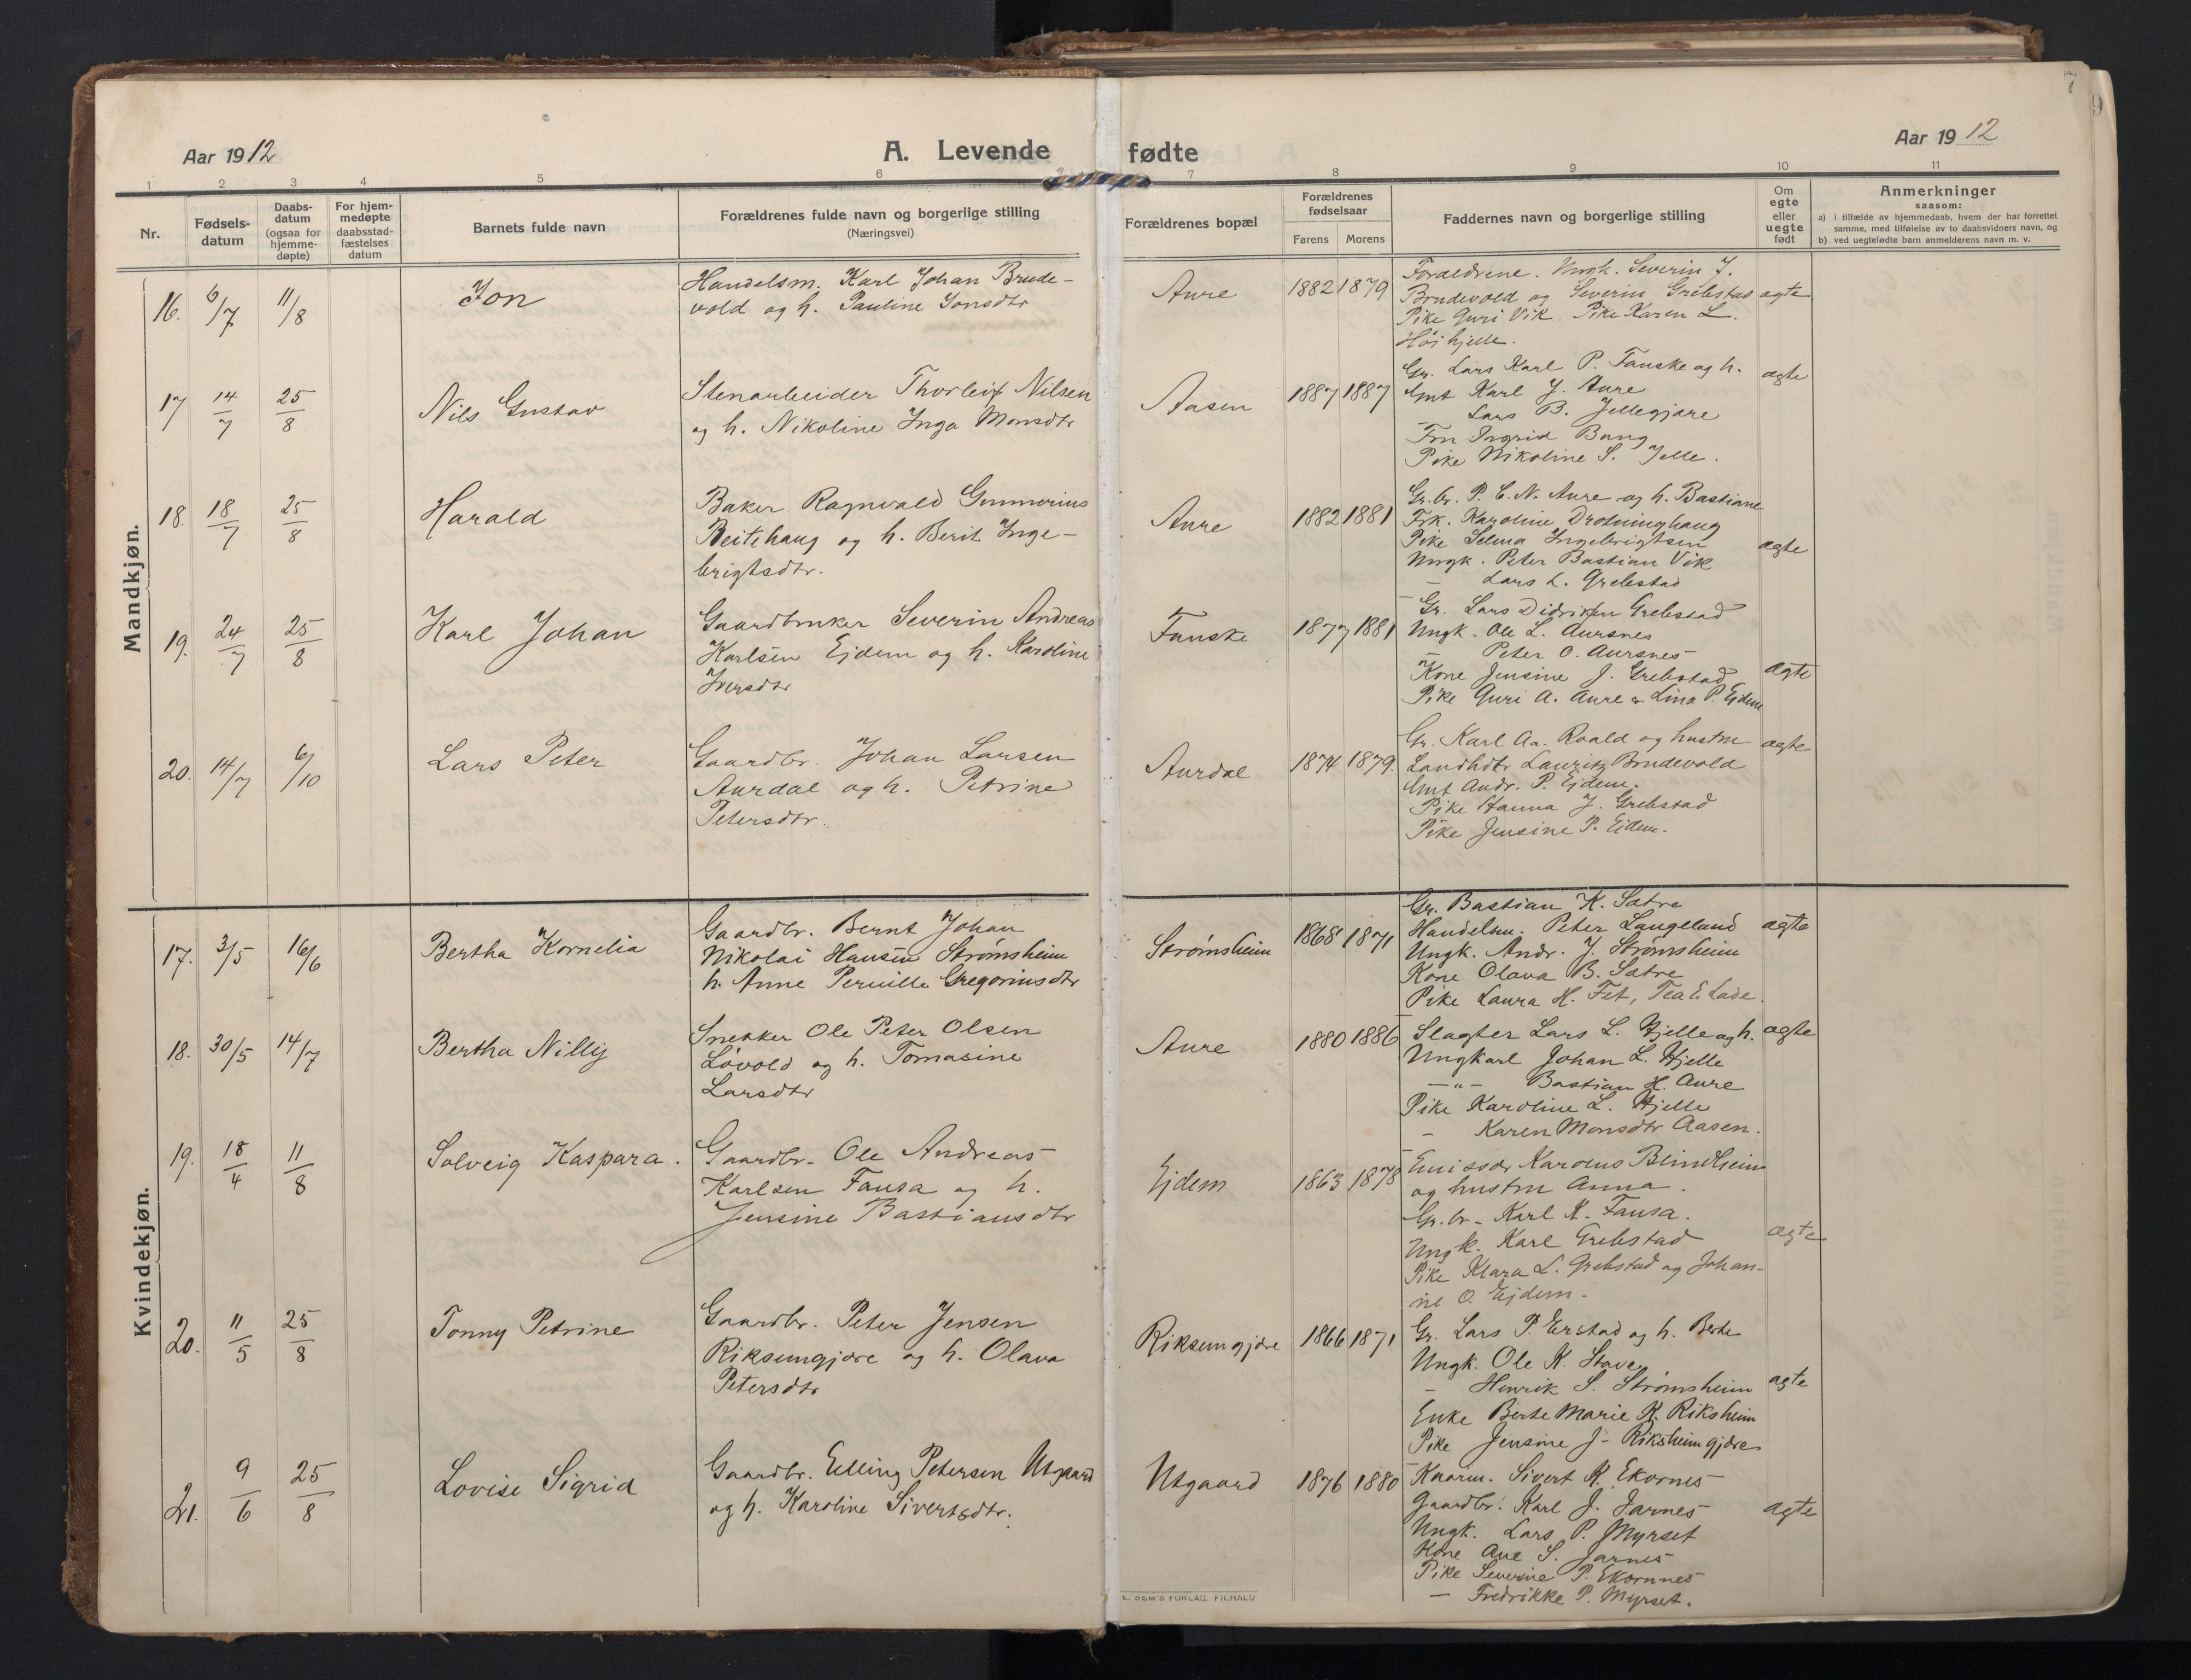 7
9
Aar 1912
A. Levende fødte
Aar 1912
1 2 3 4 5 6 7 8 9 10 11
Nr.
Fødsels-
datum
Daabs-
datum
(ogsaa for
hjemme-
døpte)
For hjem-
medøpte
daabsstad-
fæstelses
datum
Barnets fulde navn
Forældrenes fulde navn og borgerlige stilling
(Næringsvei)
Forældrenes bopæl
Forældrenes
fødselsaar
Farens Morens
Faddernes navn og borgerlige stilling
Om
egte
eller
uegte
født
Anmerkninger
saasom:
a) i tilfælde av hjemmedaab, hvem der har forrettet
samme, med tilføielse av to daabsvidners navn, og
b) ved uegtefødte barn anmelderens navn m. v.
Mandkjøn.
16. 6/7 11/8 Jon
Handelsm. Karl Johan Brude-
vold og h. Pauline Jonsdtr
Aure 1882 1879
Foraeldrene. Ungk. Severin J.
Brudevold og Severin Grebstad
Pike Guri Vik. Pike Karen L.
Høihjelle.
ægte
17 14/7 25/8 Nils Gustav
Stenarbeider Thorleif Nilsen
og h. Nikoline Inga Monsdtr
Aasen 1887 1887
Gr. Lars Karl P. Fauske og h.
Gmt Karl J. Aure
Lars B. Jellegjære
Fru Ingrid Bang
Pike Nikoline S. Jelle.
ægte
18. 18/7 25/8 Harald
Baker Ragnvald Gunnerius
Beitehaug og h. Berit Inge-
brigtsdtr.
Aure 1882 1881
Gr.br. P. C. N. Aure og h. Bastiane
Frk. Karoline Drotninghaug
Pike Selma Ingebrigtsen
Ungk. Peter Bastian Vik
— Lars L. Grebstad
ægte
19. 24/7 25/8 Karl Johan
Gaardbruker Severin Andreas
Karlsen Ejdem og h. Karoline
Iversdtr
Fauske 1877 1881
Gr. Lars Didriksen Grebstad
Ungk. Ole L. Aursnes
— Peter O. Aursnes
Kone Jensine J. Grebstad
Pike Guri A. Aure & Lina P. Ejdem
ægte
20. 14/7 6/10 Lars Peter
Gaardbr. Johan Larsen
Aurdal og h. Petrine
Petersdtr.
Aurdal 1874 1879
Gr. Karl Aa. Roald og hustru
Landhdtr Lauritz Brudevold
Gmt Andr. P. Ejdem.
Pike Hanna J. Grebstad
Pike Jensine P. Eidem.
ægte
Kvindekjøn.
17. 3/5 16/6 Bertha Kornelia
Gaardbr. Bernt Johan
Nikolai Hansen Strømsheim
h. Anne Pernille Gregoriusdtr
Strømsheim 1868 1871
Gr. Bastian K. Sætre
Handelsm. Peter Langeland
Ungk. Andr. J. Strømsheim
Kone Olava B. Sætre
Pike Laura H. Fet, Tea E. Lade.
ægte
18. 30/5 14/7 Bertha Nilly
Snekker Ole Peter Olsen
Løvold og h. Tomasine
Larsdtr
Aure 1880 1886
Slagter Lars L. Hjelle og h.
Ungkarl Johan L. Hjelle
—"— Bastian H. Aure
Pike Karoline L. Hjelle
— Karen Monsdtr Aasen.
ægte
19. 18/4 11/8 Solveig Kaspara.
Gaardbr. Ole Andreas
Karlsen Fausa og h.
Jensine Bastiansdtr
Ejdem 1863 1878
Emissær Karolus Blindheim
og hustru Anna.
Gr.br. Karl K. Fausa.
Ungk. Karl Grebstad
Pike Klara L. Grebstad og Johan-
ne O. Ejdem.
ægte
20. 11/5 25/8 Tonny Petrine
Gaardbr. Peter Jensen
Riksemgjære og h. Olava
Petersdtr
Riksemgjære 1866 1871
Gr. Lars P. Erstad og h. Berte
Ungk. Ole K. Stave
— Henrik S. Strømsheim
Enke Berte Marie K. Riksheim
Pike Jensine J. Riksheimgjære
ægte
21. 9/6 25/8 Lovise Sigrid
Gaardbr. Elling Petersen Utgaard
og h. Karoline Sivertsdtr.
Utgaard 1876 1880
Kaarm. Sivert K. Ekornes
Gaardbr. Karl J. Jarnes
Ungk. Lars P. Myrset
Kone Ane S. Jarnes
Pike Severine P. Ekornnes
— Fredrikke P. Myrset.
ægte